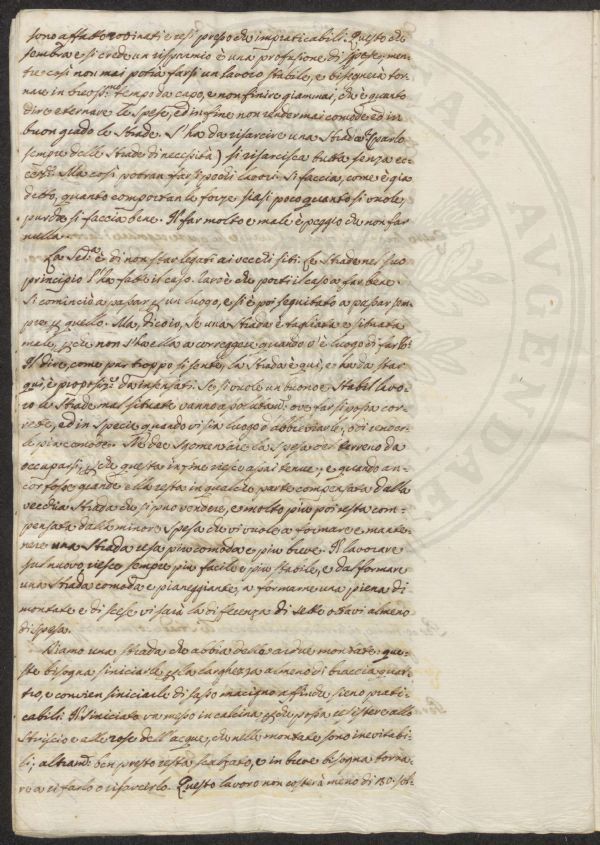 sono affatto rovinati e resi presso che impraticabili. Questo che
sembra e si crede un risparmio è una profusione di spese, men-
tre così non mai potrà farsi un lavoro stabile, e bisognerà tor-
nare in breviss.mo tempo da capo, e non finire giammai, che è quanto
dire eternare le spese, ed in fine non render mai comode ed in
buon grado le strade. S'ha da risarcire una strada (parlo
sempre delle strade di necessità) si risarcisca tutta senza ec-
cett.e Ma così potran farsi pochi lavori. Si faccia, come è già
detto, quanto comportan le forze, siasi poco quanto si vuole,
purché si faccia bene. Il far molto e male è peggio che non far
nulla.
La Sed.a è di non star legati ai vecchi siti. Le strade nel suo
principio l'ha fatte il caso. raro è che porti il caso a far bene.
Si cominciò a passar per un luogo, e si è poi seguitato a passar sem-
pre per quello. Ma, dic'io, se una strada è tagliata e situata
male, perché non s'ha ella a correggere quando v'è luogo di farlo?
Il dire, come pur troppo si sente, la strada è qui, e ha da star
qui, è proposiz.e da insensati. Se si vuole un buono e stabil lavo-
ro le strade mal situate vanno assolutam.e ove farsi possa cor-
rette, ed in specie quando vi sia luogo d'abbreviarle, o di render-
le più comode. Né dee sgomentare la spesa del terreno da
occuparsi, perché questa in prime riesce assai tenue, e quando an-
cor fosse grande ella resta in qualche parte compensata dalla
vecchia strada che si può vendere, e molto più poi resta com-
pensata dalla minore spesa che vi vuole a formare e mante-
nere una strada resa più comoda e più breve. Il lavorare
sul nuovo, riesce sempre più facile e più stabile, e dal formare
una strada comoda e pianeggiante, a formarne una piena di
montate e di scese vi sarà la differenza di sette ottavi almeno
di spesa.
Diamo una strada che abbia delle ardue montate: que-
ste bisogna siniciarle per la larghezza almeno di braccia quat-
tro, e convien siniciarle di sasso macigno a fin che sieno prati-
cabili. Il siniciato va messo in calcina perché possa resistere allo
striscio e alle rose dell'acque, che nelle montate sono inevitabi-
li; altram.e ben presto resta scalzato, e in breve bisogna torna-
re a rifarlo o risarcirlo. Questo lavoro non costerà meno di 130. sol-